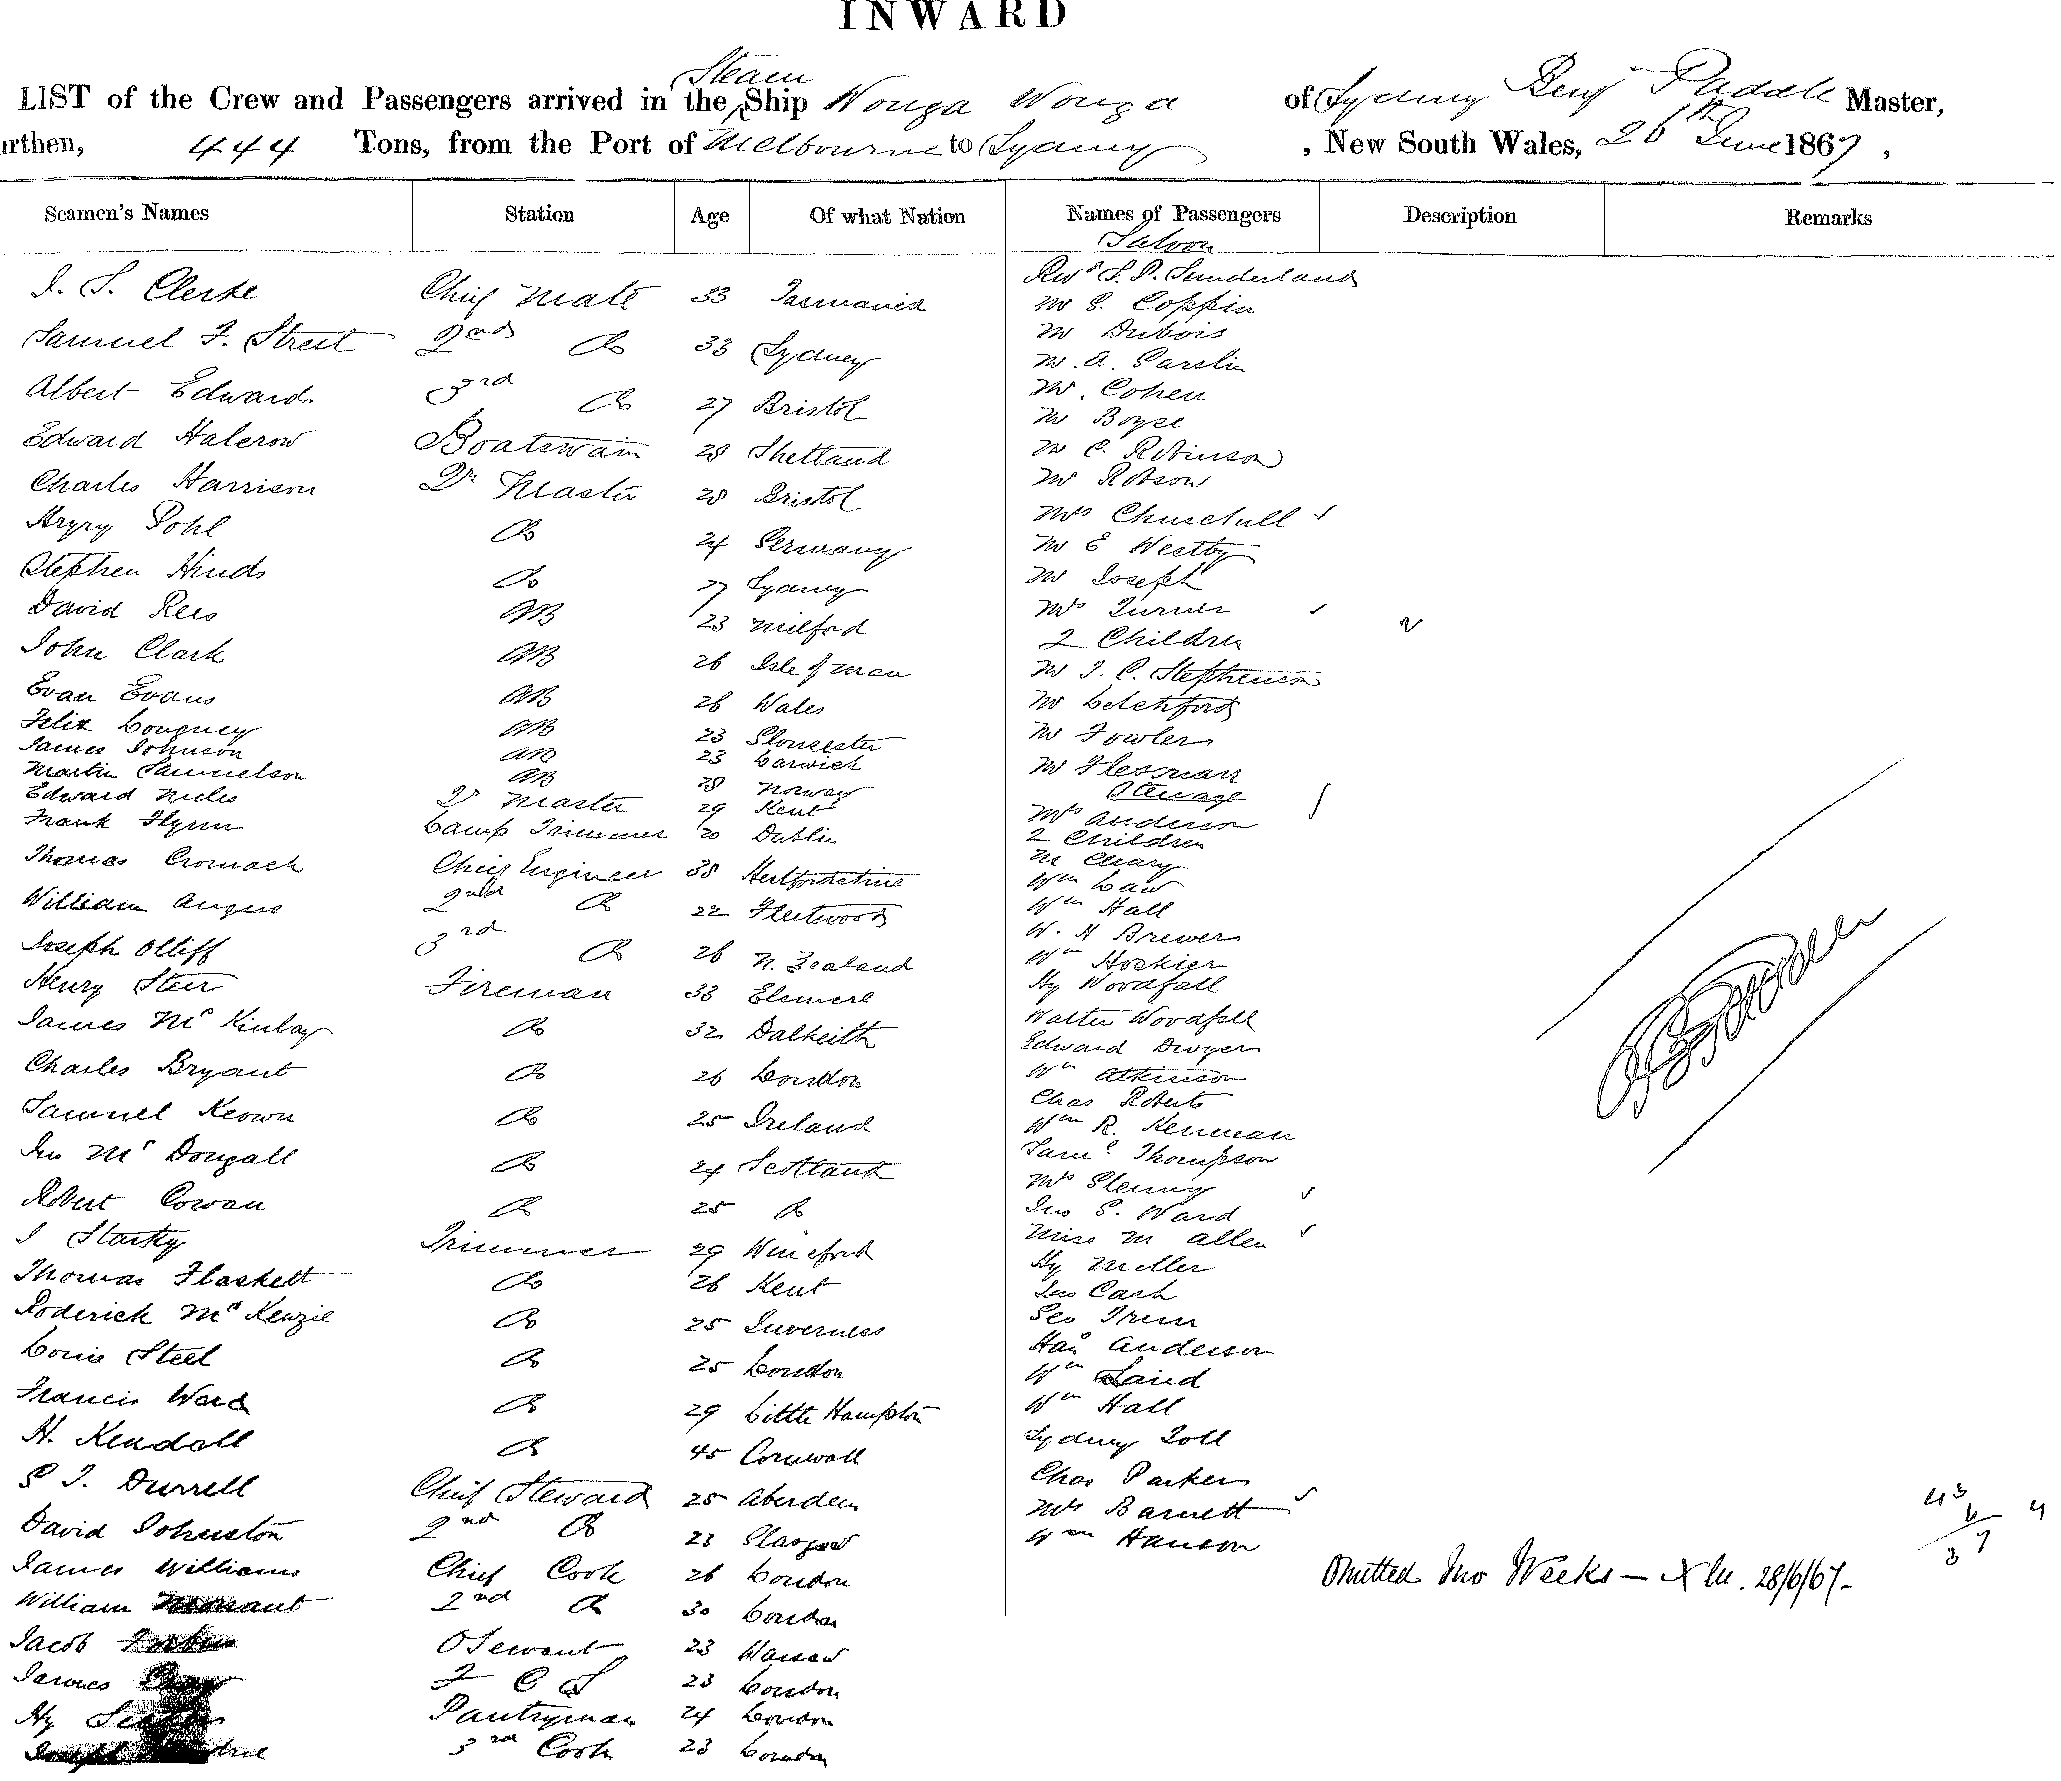 INWARD
Steam
LIST of the Crew and Passengers arrived in the Ship Wonga Wonga of Sydney Benj Master,
urthen, 444 Tons, from the Port of Melbourne to Sydney , New South Wales, 26th June 1867 ,
Seamen's Names Station Age Of what Nation Names of Passengers Description Remarks
Saloon
J. S. Clerke Chief Mate 33 Tasmania
Samuel F. Street 2nd Do 33 Sydney
Albert Edward 3rd Do 27 Bristol
Edward Halcrow Boatswain 28 Shetland
Charles Harrison Qr Master 28 Bristol
Pohl Do 24 Germany
Stephen Hinds Do 27 Sydney
David Rees AB 23 Milford
John Clark AB 26 Isle of Man
Evan Evans AB 26 Wales
Felix AB 23 Gloucester
James Johnson AB 23
Martin Samuelson AB 28 Norway
Edward Miles Qr Master 29 Kent
Frank Flynn Lamp Trimmer 20 Dublin
Thomas Cromack Chief Engineer 38 Hertfordshire
William Angus 2nd Do 22 Fleetwood
Joseph Olliff 3rd Do 26 N. Zealand
Henry Steer Fireman 33 Elsmere
James McKinlay Do 32 Dalkeith
Charles Bryant Do 26 London
Samuel Keown Do 25 Ireland
Jno McDougall Do 24 Scotland
Robert Cowan Do 25 Do
J Starky Trimmer 29
Thomas Flaskett Do 26 Kent
Roderick McKenzie Do 25 Inverness
Louis Steel Do 25 London
Francis Ward Do 29 Little Hampton
H. Kendall Do 45 Cornwall
S J. Durrell Chief Steward 25 Aberdeen
David Johnston 2nd Do 23 Glasgow
James Williams Chief Cook 26 London
William 2nd Do 30 London
Jacob 23
James 23 London
Hy Pantryman 24 London
Joseph 3rd Cook 23 London
Revd S. P. Sunderland
Mr G. Coppin
Mr Dubois
Mr A.
Mr. Cohen
Mr Boyce
Mr C. Robinson
Mr Robson
Mrs Churchill
Mr E Westby
Mr Joseph
Mrs Turner
2 Children 2
Mr J. C. Stephenson
Mr Letchford
Mr Fowler
Mr Flesman
Steerage
Mrs Anderson
2 Children
Mr Cleary
Wm Law
Wm Hall
W. H Brewer
Wm Hoskier
Hy Woodfall
Walter Woodfall
Edward Dwyer
Wm Atkinson
Chas Roberts
Wm R. Kenman
Saml Thompson
Mrs
Jno S. Ward
Miss M Allen
Hy Miller
Jno Cash
Geo Trim
Han Anderson
Wm Laird
Wm Hall
Sydney Toll
Chas Parker
Mrs Barnett
Wm Hanson
43
6 4
37
Omitted Jno Weeks — 28/6/67.